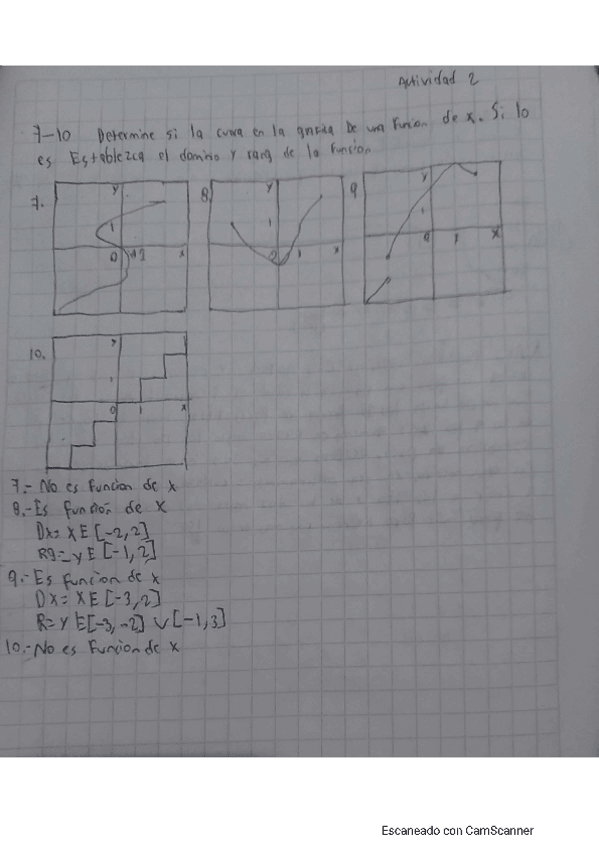 Actividad 2
7-10 Determine si la curva en la grafica De una Funion de x. Si lo
es Establezca el dominio y rang de la Funcion
7. y 1 0 1 x
8 y 1 0 1 x
9 y 1 0 1 x
10. y 1 0 1 x
7.- No es Funcion de x
8.- Es Funsión de x
Dx= x E [-2,2]
Rg= y E [-1,2]
9.- Es funcion de x
Dx= x E [-3,2]
R= y E [-3,-2] ∪ [-1,3]
10.- No es Funcion de x
Escaneado con CamScanner